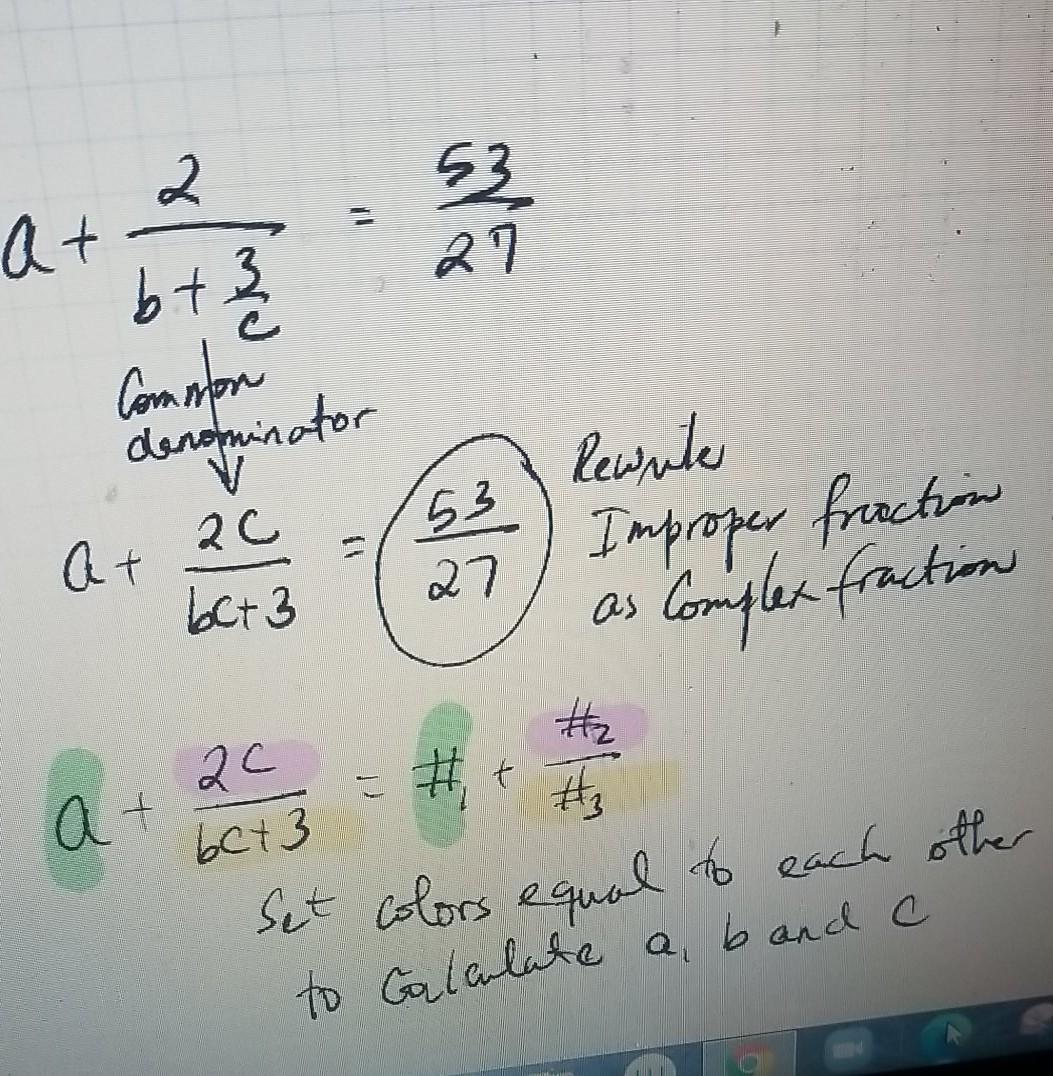 a + 2/(b + 3/c) = 53/27
Common
denominator
a + 2c/(bc+3) = 53/27
Rewrite
Improper fraction
as Complex fraction
a + 2c/(bc+3) = #₁ + #₂/#₃
Set colors equal to each other
to Calculate a, b and c